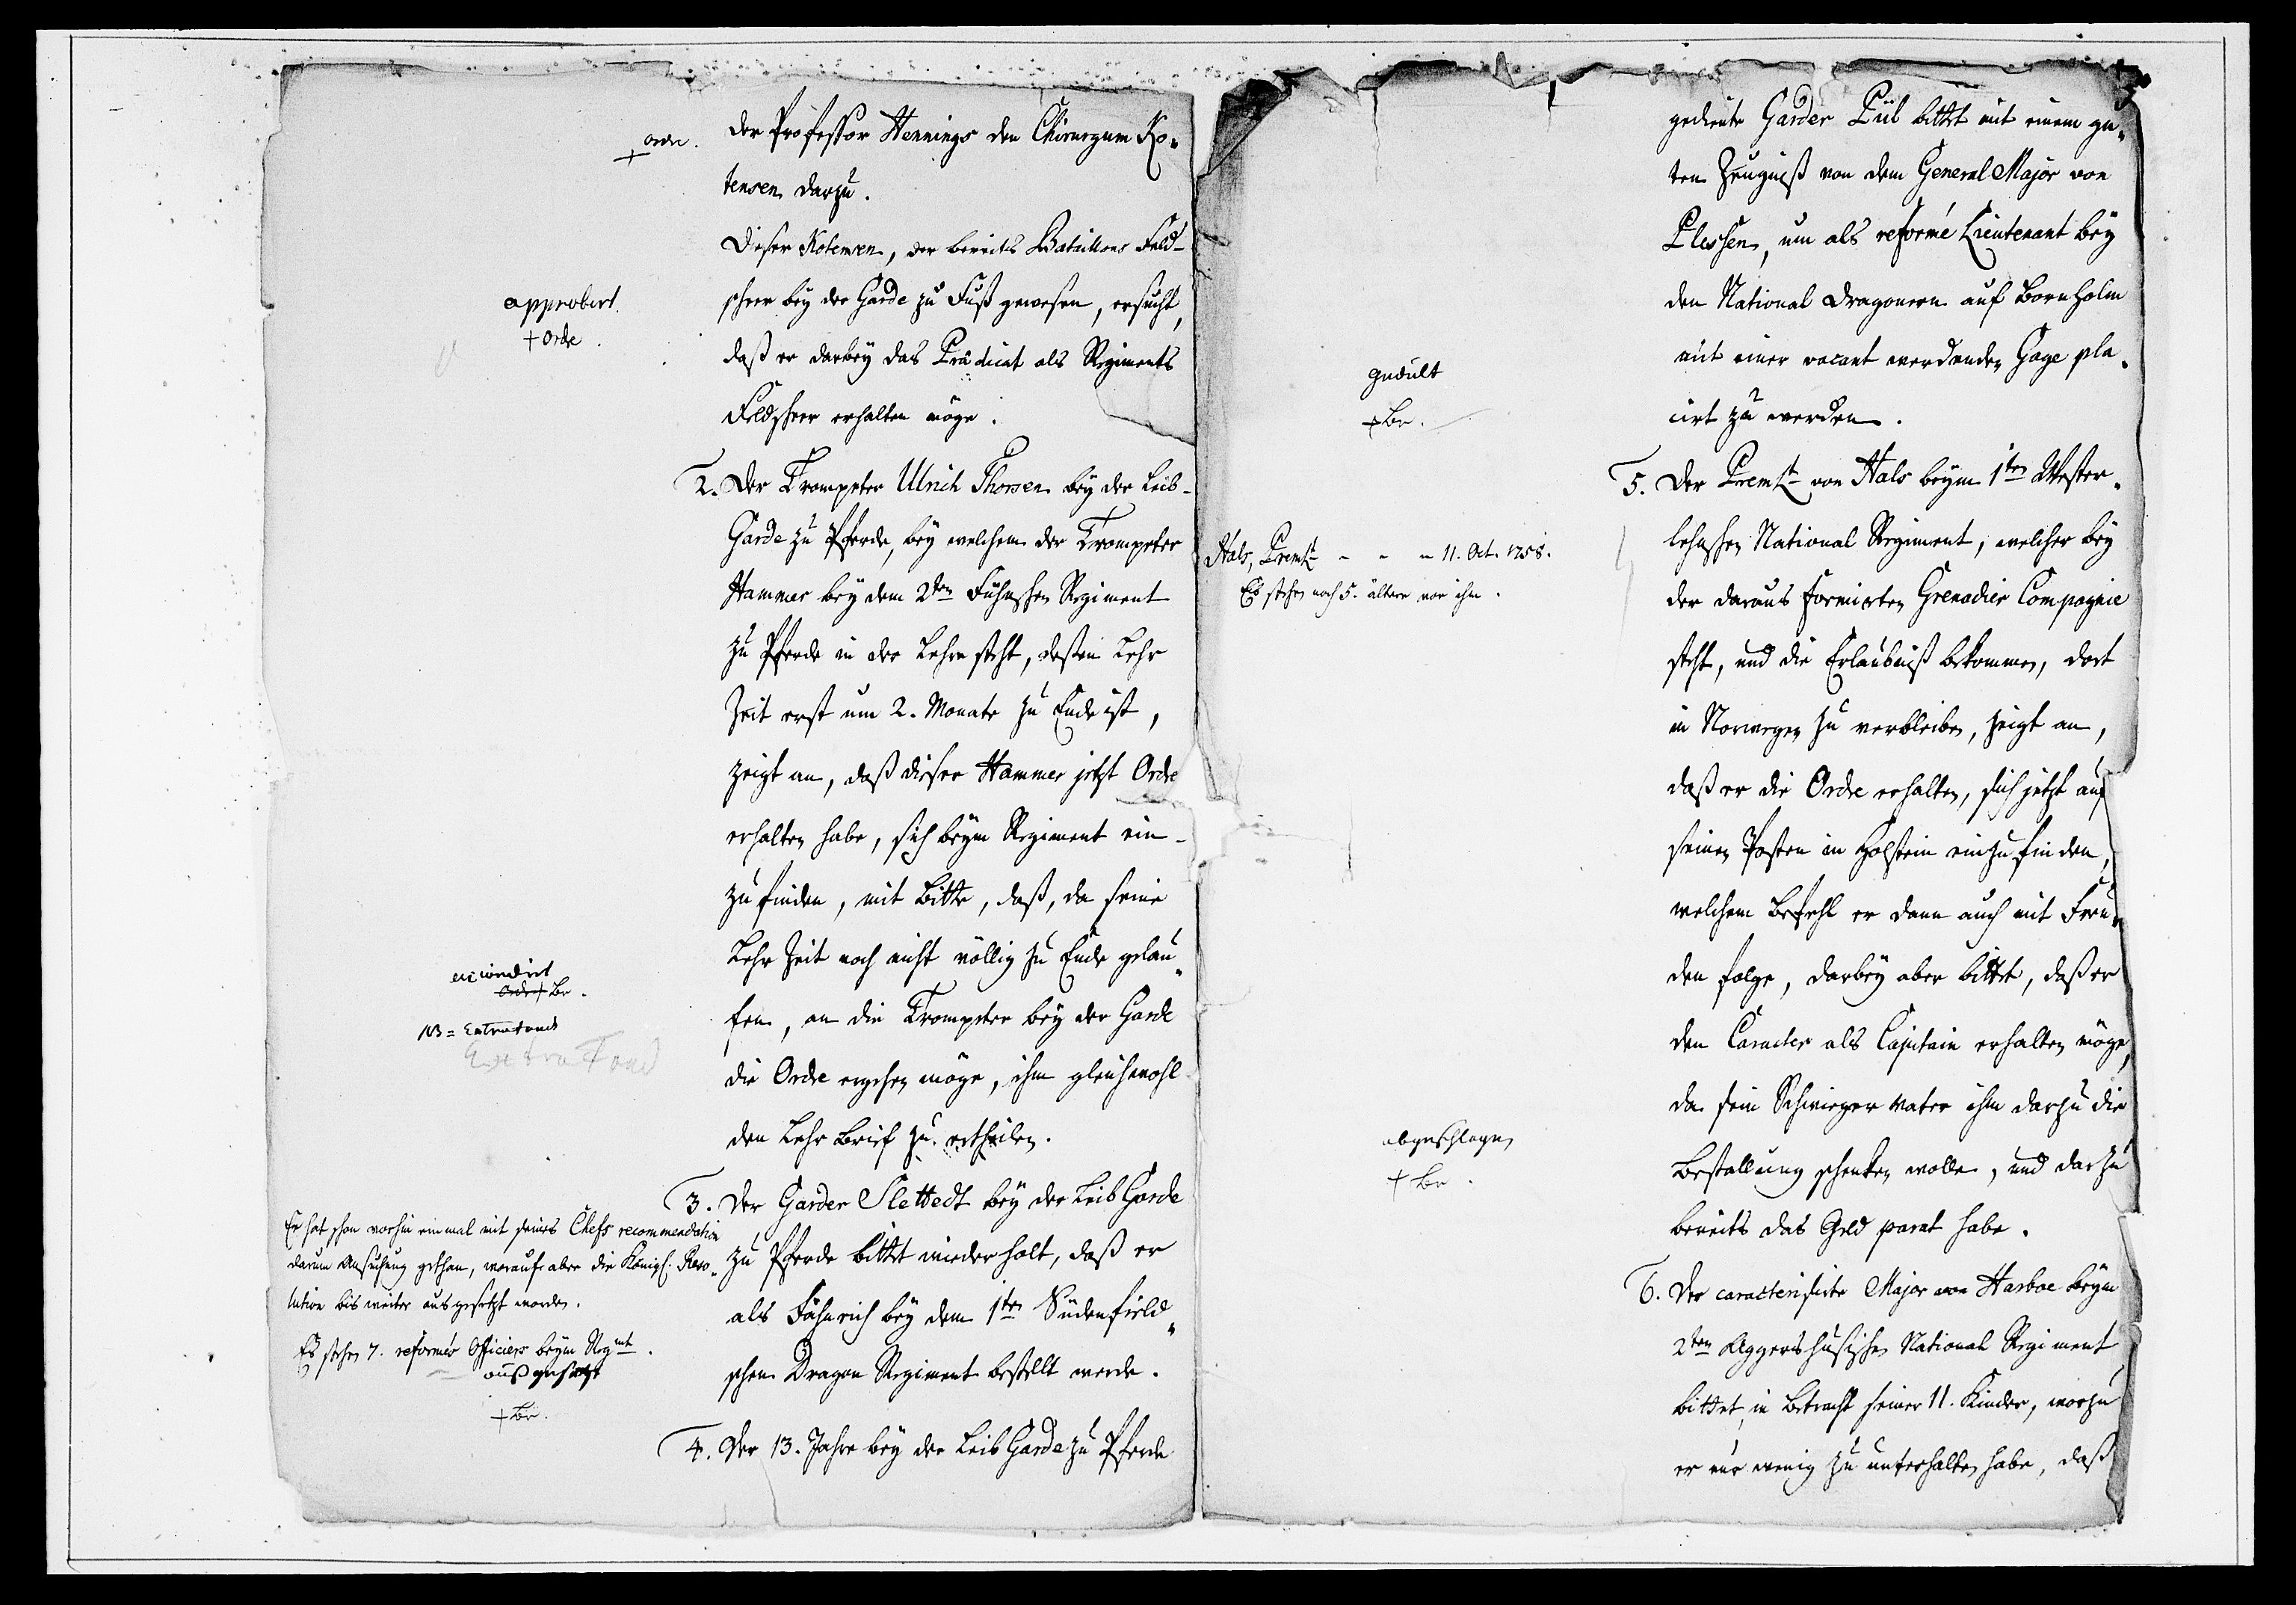 Orde.
+
der Professor Hennings den Chirurgum Ko-
tensen darzu.
Dieser Kotensen, der bereits Bataillons Feld-
scheer bey der Garde zu Fuß gewesen, ersucht,
daß er darbey das Prädicat als Regiments
Feldscheer erhalten möge.
approbirt.
+ Orde.
2. Der Trompeter Ulrich Thorsen bey der Leib-
Garde zu Pferde, bey welchem der Trompeter
Hammer bey dem 2ten Fühnschen Regiment
zu Pferde in der Lehre steht, deßen Lehr
Zeit erst um 2. Monate zu Ende ist,
zeigt an, daß dieser Hammer jetzt Ordre
erhalten habe, sich beym Regiment ein-
zufinden, mit Bitte, daß, da seine
Lehr Zeit noch nicht völlig zu Ende gelau-
fen, an die Trompeter bey der Garde
die Ordre ergehen möge, ihm gleichwohl
den Lehr Brief zu ertheilen.
accordirt
Orde + Br.
NB = Extrafond
Extra Fond
3. Der Garder Slettedt bey der Leib Garde
zu Pferde bittet wiederholt, daß er
als Fähnrich bey dem 1ten Südenfield-
schen Dragon Regiment bestellt werde.
Er hat schon vorhin einmal mit seines Chefs recommendation
darum Ansuchung gethan, worauf aber die Königl. Reso-
lution bis weiter ausgesetzt worden.
Es stehen 7. reformés Officiers beym Regmt.
außgesetzt
+ Br.
4. Der 13. Jahre bey der Leib Garde zu Pferde
gediente Garder Piil bittet mit einem gu-
ten Zeugniß von dem General Major von
Plessen, um als reformé Lieutenant bey
den National Dragonern auf Bornholm
mit einer vacant werdenden Gage pla-
cirt zu werden.
gedult
+ Br.
5. Der Premlt von Hals beym 1ten Wester-
lehnschen National Regiment, welcher bey
der daraus formirten Grenadier Compagnie
steht, und die Erlaubniß bekommen, dort
in Norwegen zu verbleiben, zeigt an,
daß er die Ordre erhalten, sich jetzt auf
seinen Posten in Holstein einzufinden,
welchem Befehl er dann auch mit Freu-
den folge, darbey aber bittet, daß er
den Caracter als Capitain erhalten möge,
da sein Schwieger Vater ihm darzu die
Bestallung schenken wolle, und darzu
bereits das Geld parat habe.
Hals, Premlt - - - 11. Oct. 1758.
Es stehen noch 5. ältere vor ihm.
abgeschlagen
+ Br.
6. Der caracterisirte Major von Harboe beym
2ten Aggershusischen National Regiment
bittet, in Betracht seiner 11. Kinder, worzu
er nur wenig zu unterhalten habe, daß